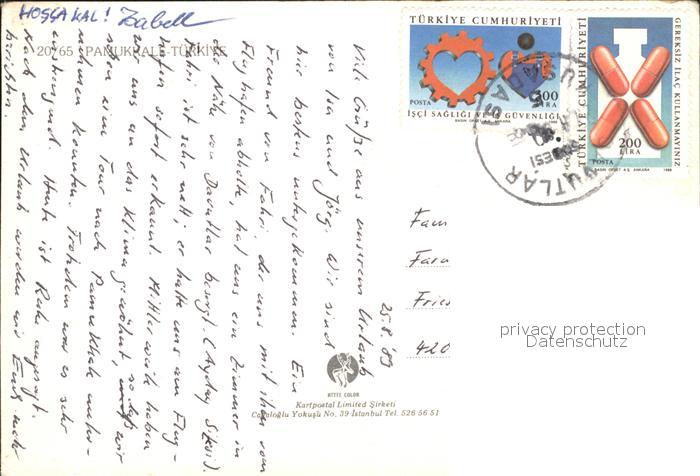 HOŞÇA KAL! Izabell
20/65 PAMUKKALE-TÜRKİYE
25.8.'89
Viele Grüße aus unserem Urlaub
von Isa und Jörg. Wir sind
hier bestens untergekommen. Ein
Freund von Fahri, der uns mit ihm vom
Flughafen abholte, hat uns ein Zimmer in
der Nähe von Davutlar besorgt. (Aydın
Fahri ist sehr nett; er hatte uns am Flug-
hafen sofort erkannt. Mittlerweile haben
wir uns an das Klima gewöhnt, so daß wir
schon eine Tour nach Pamukkale unter-
nehmen konnten. Trotzdem war es sehr
anstrengend. Heute ist Ruhe angesagt.
Nach dem Urlaub werden wir Euch mehr
berichten.
TÜRKİYE CUMHURİYETİ
POSTA
300
LİRA
İŞÇİ SAĞLIĞI VE İŞ GÜVENLİĞİ
BASIN OFSET A.Ş. ANKARA
TÜRKİYE CUMHURİYETİ
GEREKSİZ İLAÇ KULLANMAYINIZ
200
LİRA
POSTA
BASIN OFSET A.Ş. ANKARA 1989
KUŞADASI
DAVUTLAR
Fam
Fara
Fries
420
privacy protection
Datenschutz
Kartpostal Limited Şirketi
Cağaloğlu Yokuşu No. 39-İstanbul Tel. 526 56 51